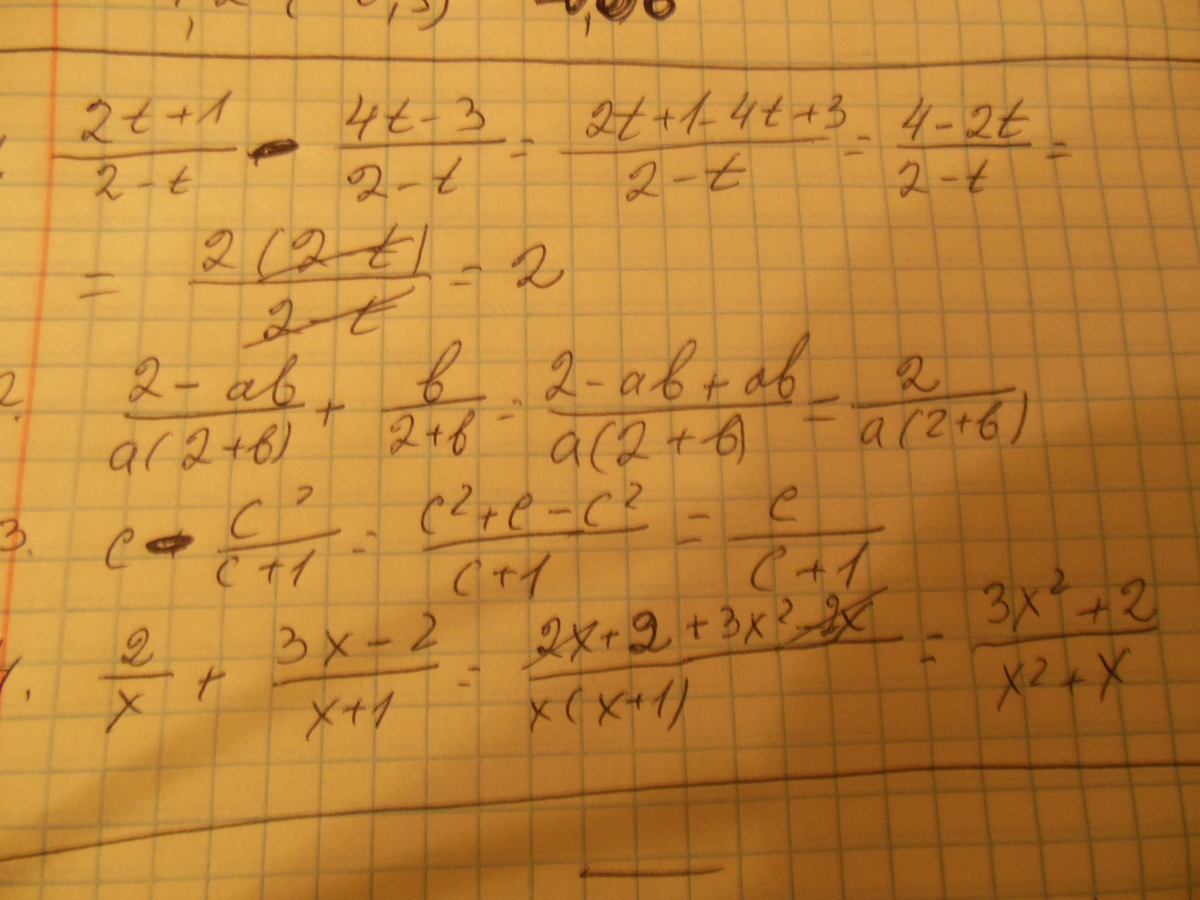 (2t+1)/(2-t) - (4t-3)/(2-t) = (2t+1-4t+3)/(2-t) = (4-2t)/(2-t) =
= 2(2-t)/(2-t) = 2
2. (2-ab)/(a(2+b)) + b/(2+b) = (2-ab+ab)/(a(2+b)) = 2/(a(2+b))
3. c - c²/(c+1) = (c²+c-c²)/(c+1) = c/(c+1)
2/x + (3x-2)/(x+1) = (2x+2+3x²-2x)/(x(x+1)) = (3x²+2)/(x²+x)